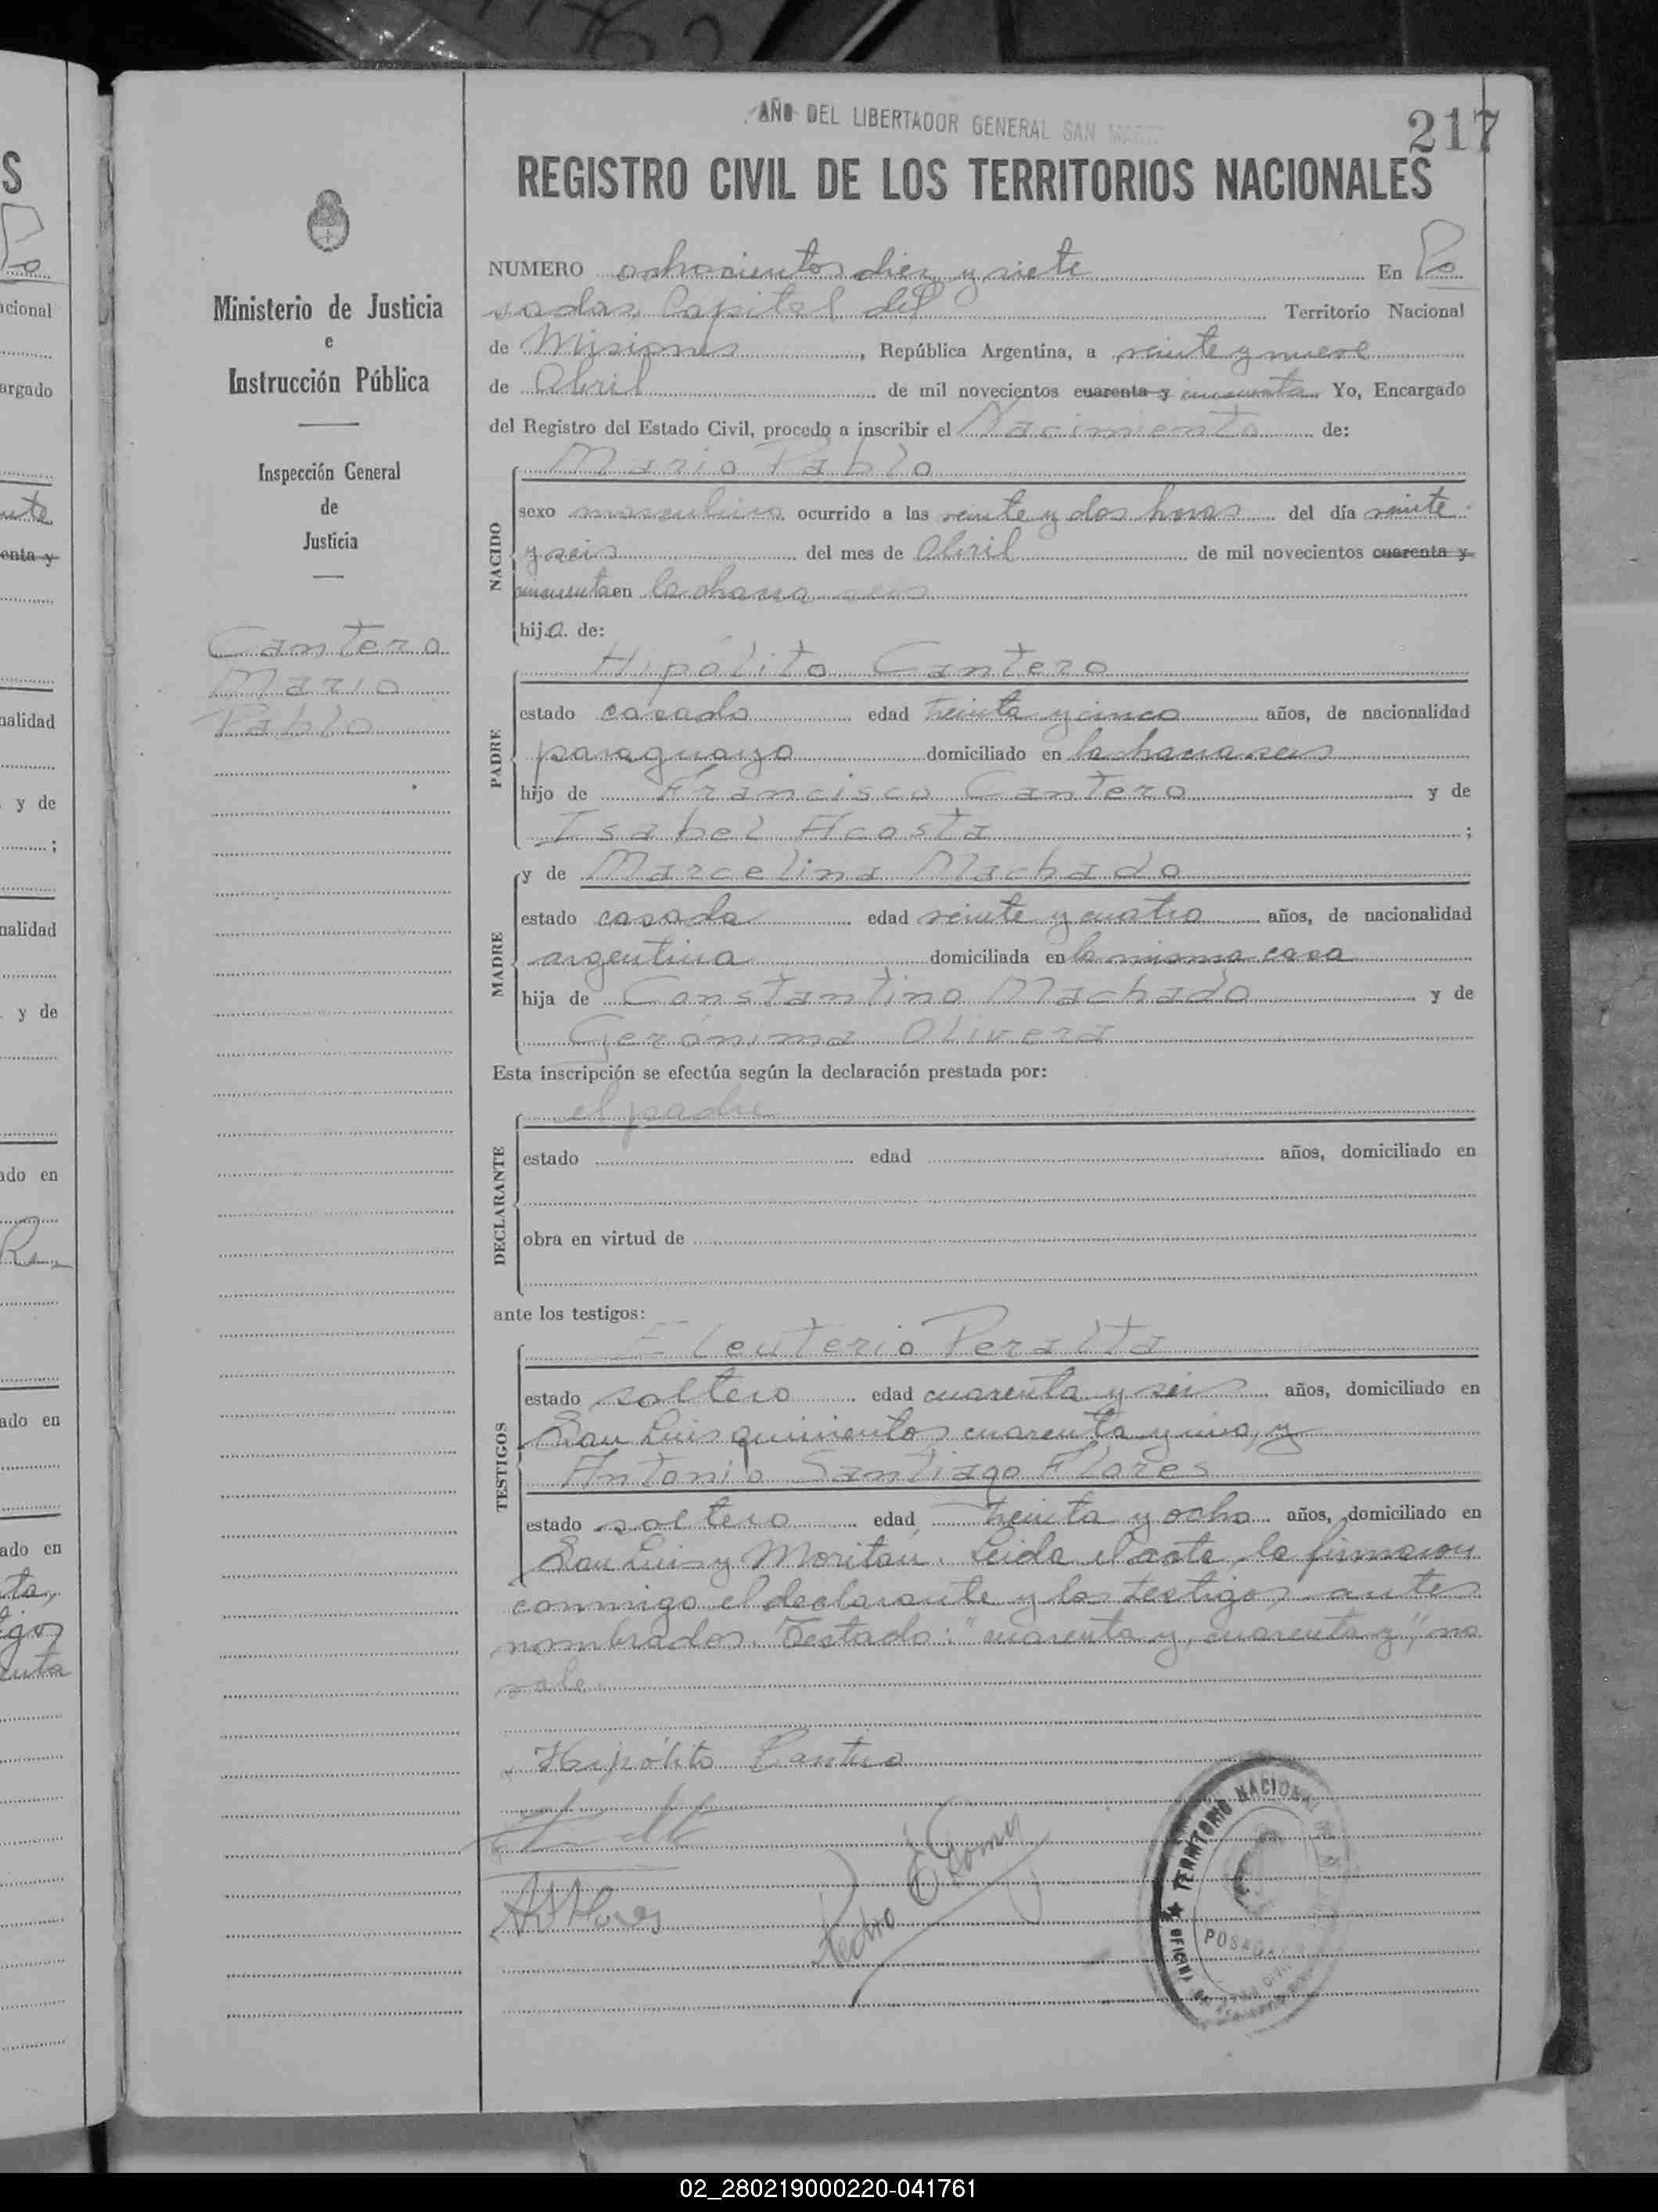 AÑO DEL LIBERTADOR GENERAL SAN
217
REGISTRO CIVIL DE LOS TERRITORIOS NACIONALES
Ministerio de Justicia
e
Instrucción Pública
Inspección General
de
Justicia
Cantero
Mario
Pablo
NUMERO ochocientos diez y siete En Po
sadas Capital del Territorio Nacional
de Misiones, República Argentina, a veinte y nueve
de Abril de mil novecientos cuarenta y cincuenta Yo, Encargado
del Registro del Estado Civil, procedo a inscribir el Nacimiento de:
Mario Pablo
NACIDO
sexo masculino ocurrido a las veinte y dos horas del día veinte
y seis del mes de Abril de mil novecientos cuarenta y
cincuenta en la chacra seis
hij.o. de:
Hipólito Cantero
PADRE
estado casado edad treinta y cinco años, de nacionalidad
paraguayo domiciliado en la chacra seis
hijo de Francisco Cantero y de
Isabel Acosta ;
MADRE
y de Marcelina Machado
estado casada edad veinte y cuatro años, de nacionalidad
argentina domiciliada en la misma casa
hija de Constantino Machado y de
Gerónima Olivera
Esta inscripción se efectúa según la declaración prestada por:
el padre
DECLARANTE
estado edad años, domiciliado en
obra en virtud de
ante los testigos:
Eleuterio Peralta
TESTIGOS
estado soltero edad cuarenta y seis años, domiciliado en
San Luis quinientos cuarenta y uno, y
Antonio Santiago Flores
estado soltero edad treinta y ocho años, domiciliado en
San Luis y Moritán. Leida el acta, la firmaron
conmigo el declarante y los testigos antes
nombrados. Testado: "cuarenta y, cuarenta y", no
vale.
Hipólito Cantero
A S Flores
Pedro E Gomez
TERRITORIO NACIONAL
POSADAS
02_280219000220-041761